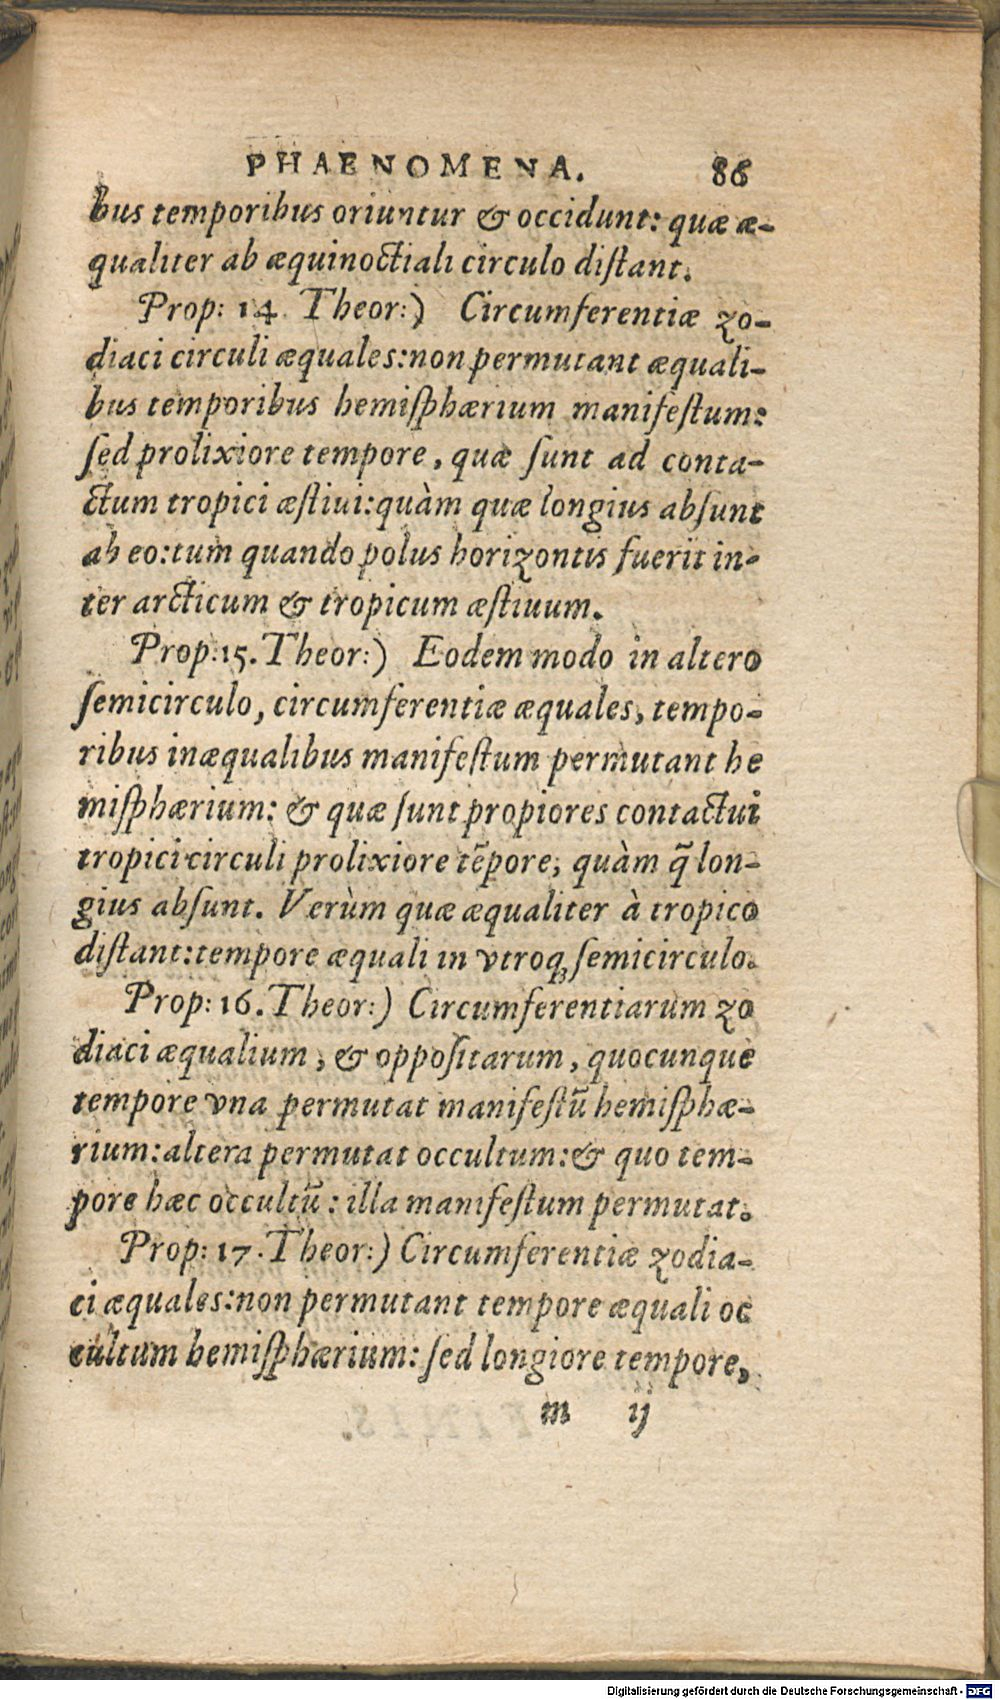 PHAENOMENA. 86
bus temporibus oriuntur & occidunt: quæ æ-
qualiter ab æquinoctiali circulo diſtant.
Prop: 14. Theor:) Circumferentiæ zo-
diaci circuli æquales: non permutant æquali-
bus temporibus hemiſphærium manifeſtum:
ſed prolixiore tempore, quæ ſunt ad conta-
ctum tropici æſtiui: quàm quæ longius abſunt
ab eo: tum quando polus horizontis fuerit in-
ter arcticum & tropicum æſtiuum.
Prop. 15. Theor:) Eodem modo in altero
ſemicirculo, circumferentiæ æquales, tempo-
ribus inæqualibus manifeſtum permutant he
miſphærium: & quæ ſunt propiores contactui
tropici circuli prolixiore tẽpore, quàm q̃ lon-
gius abſunt. Verùm quæ æqualiter à tropico
diſtant: tempore æquali in vtroq; ſemicirculo.
Prop: 16. Theor:) Circumferentiarum zo
diaci æqualium, & oppoſitarum, quocunque
tempore vna permutat manifeſtũ hemiſphæ-
rium: altera permutat occultum: & quo tem-
pore hæc occultũ: illa manifeſtum permutat.
Prop: 17. Theor:) Circumferentiæ zodia-
ci æquales: non permutant tempore æquali oc
cultum hemiſphærium: ſed longiore tempore,
m ij
Digitalisierung gefördert durch die Deutsche Forschungsgemeinschaft - DFG